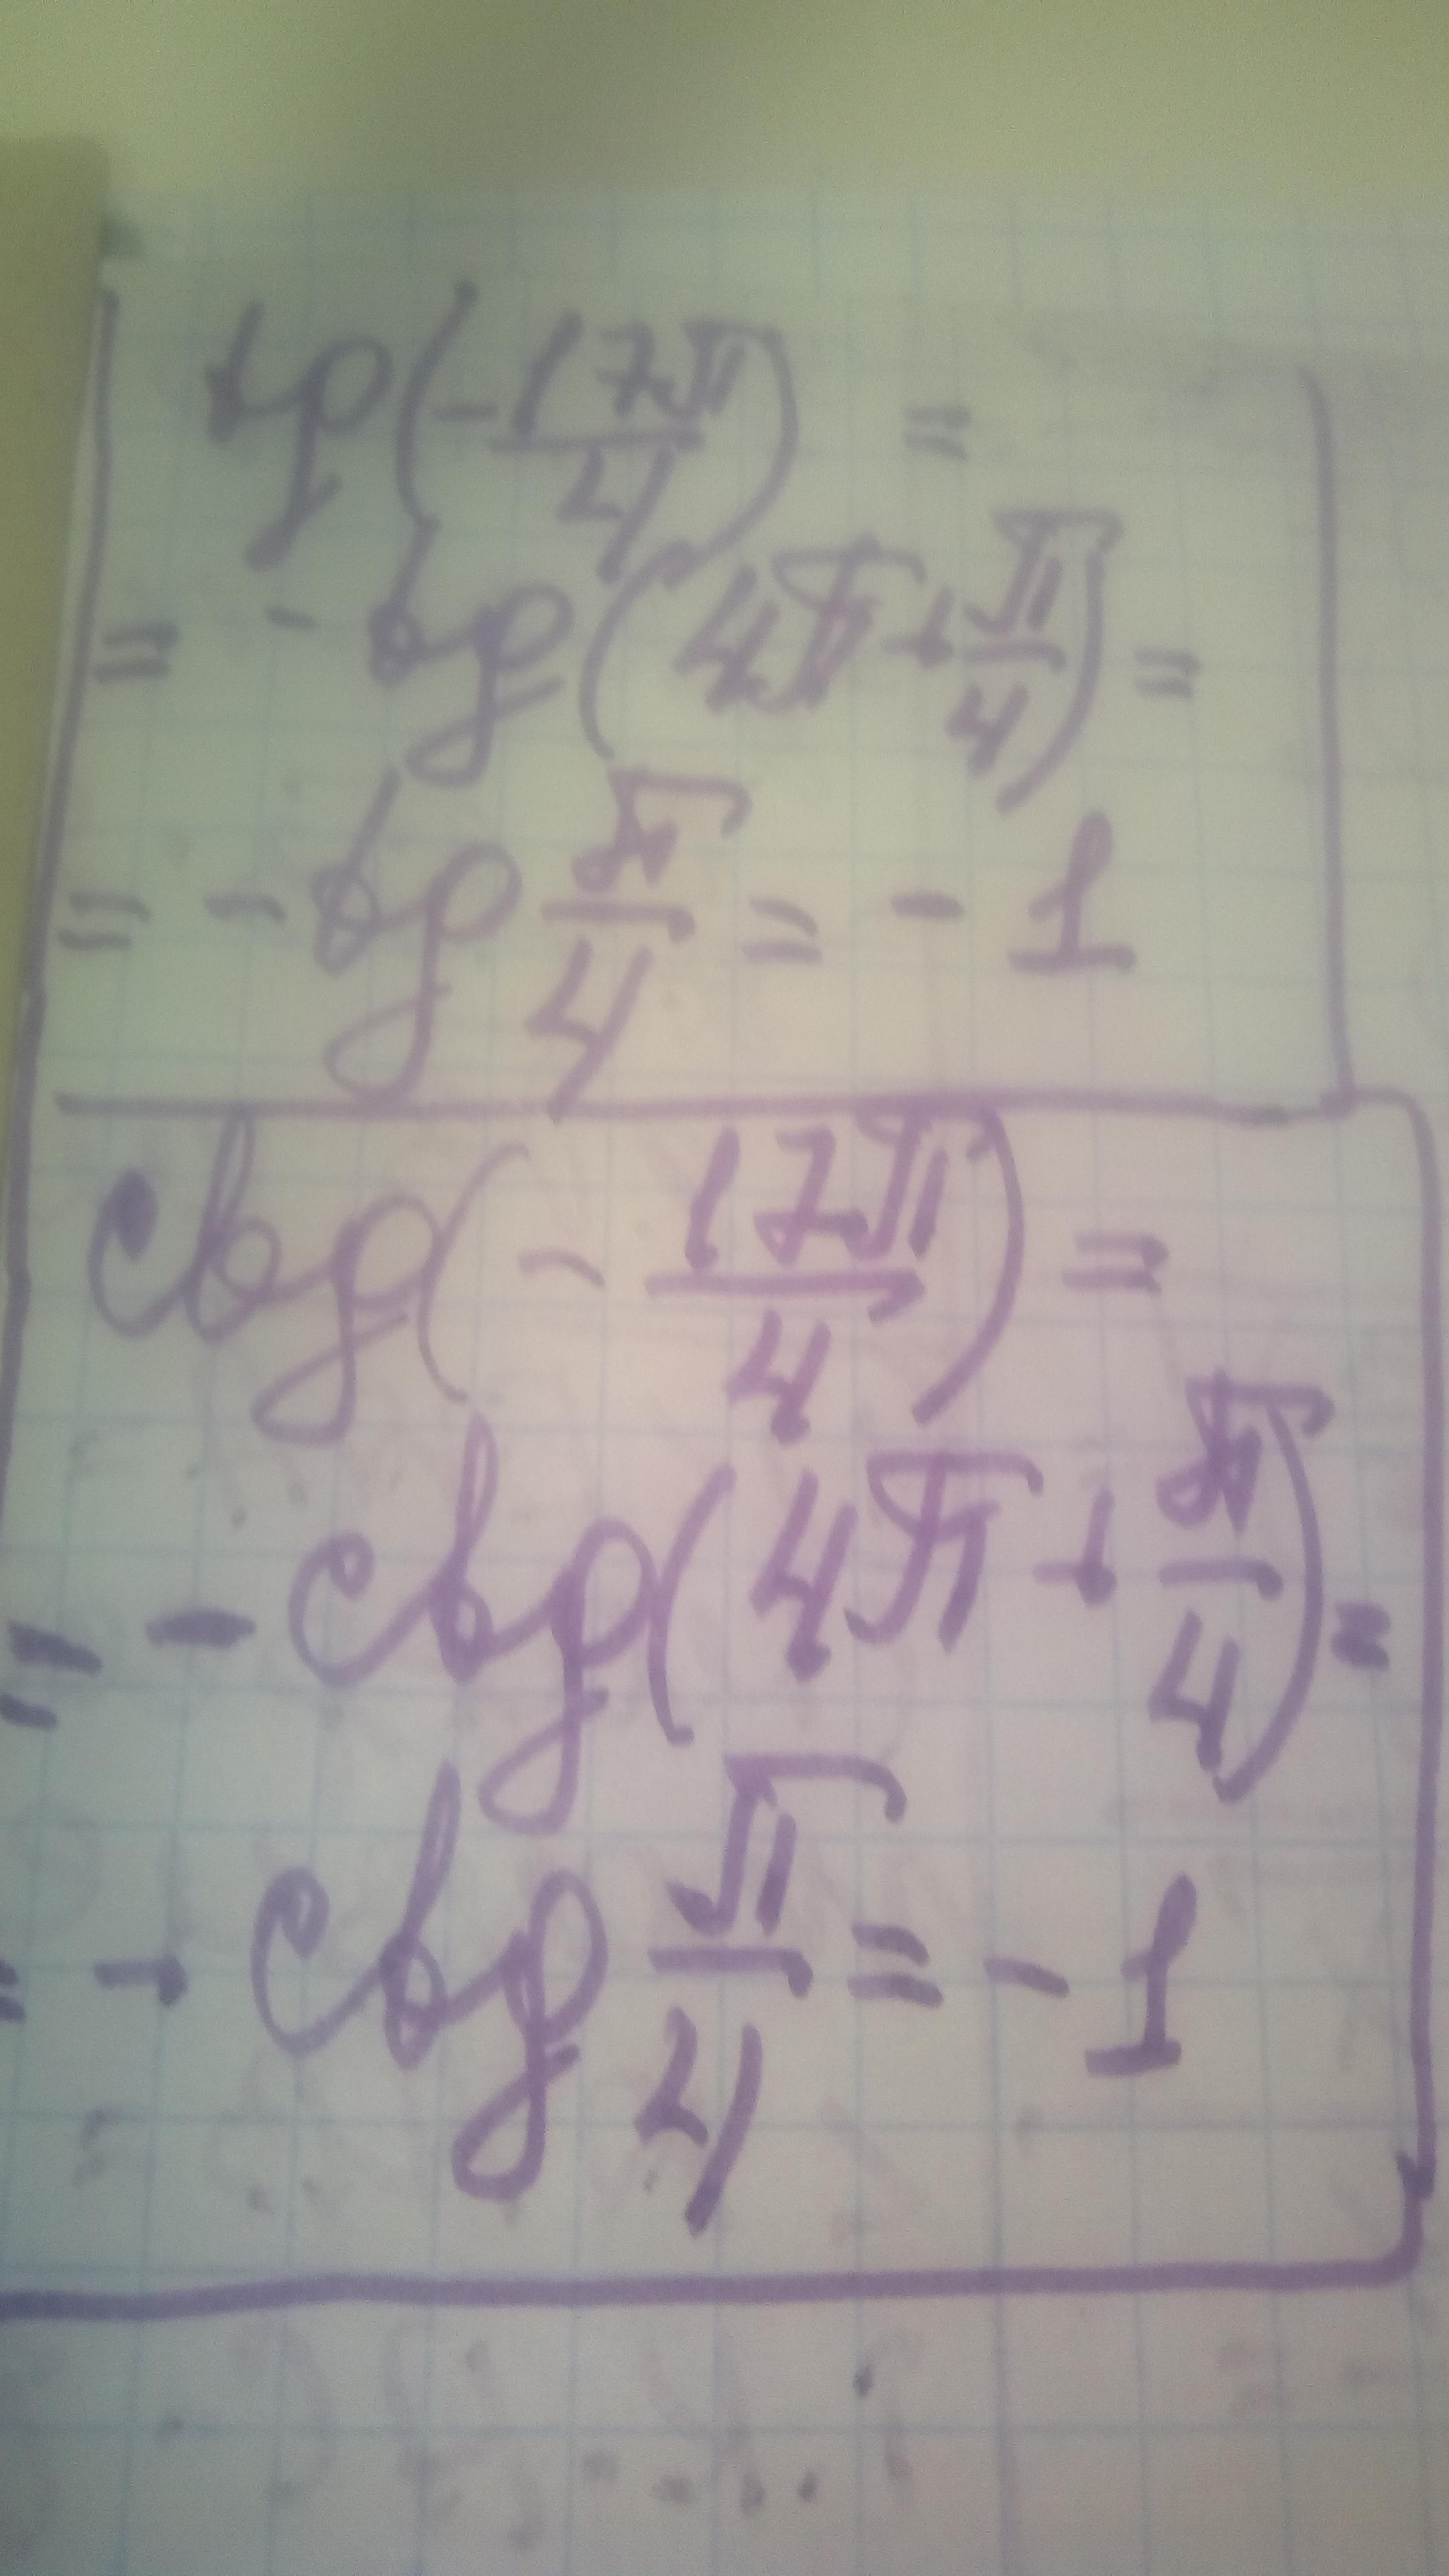 tg(-17π/4) =
= - tg(4π+π/4) =
= - tg π/4 = - 1
ctg(-17π/4) =
= - ctg(4π+π/4) =
= - ctg π/4 = - 1